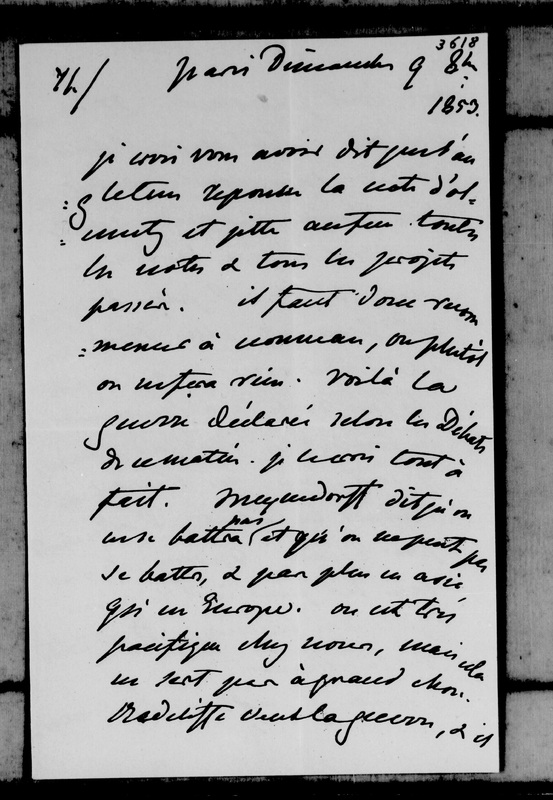 3618
76/ Paris Dimanche 9 8bre
1853.
je crois vous avoir dit que l'an
=gleterre repousse la note d'ol-
=mutz et jette au feu toutes
les notes & tous les projets
passés. il faut donc recom
=mencer à nouveau, ou plutôt
on ne fera rien. Voilà la
guerre déclarée selon les Débats
de ce matin. je le crois tout à
fait. Meyendorff dit qu'on
ne se battra pas et qu'on ne peut pas
se battre, & pas plus en asie
qu'en Europe. on est très
pacifique chez nous, mais cela
ne sert pas à grand chose.
Redcliffe veut la guerre, & il